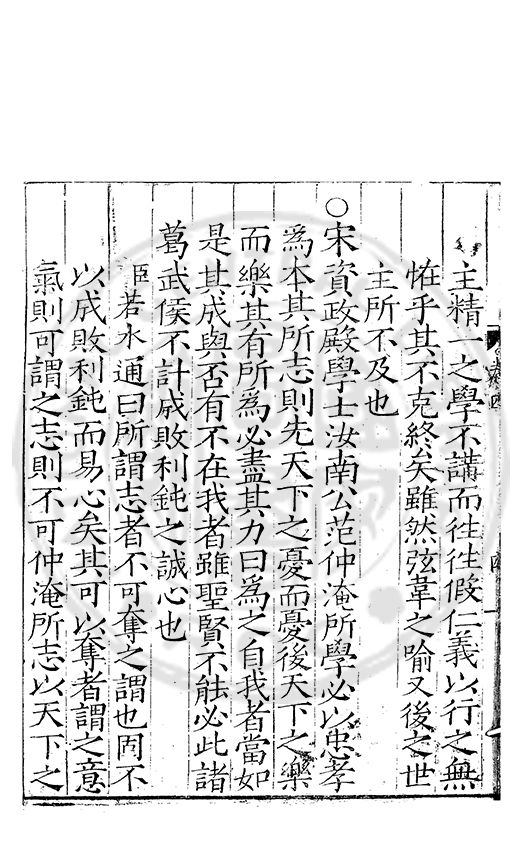 主精一之學不講而徃徃假仁義以行之無
恠乎其不克終矣雖然弦韋之喻又後之世
主所不及也
○宋資政殿學士汝南公范仲淹所學必以忠孝
為本其所志則先天下之憂而憂後天下之樂
而樂其有所為必盡其力曰為之自我者當如
是其成與否有不在我者雖聖賢不能必此諸
葛武侯不計成敗利鈍之誠心也
臣若水通曰所謂志者不可奪之謂也罔不
以成敗利鈍而易心矣其可以奪者謂之意
氣則可謂之志則不可仲淹所志以天下之